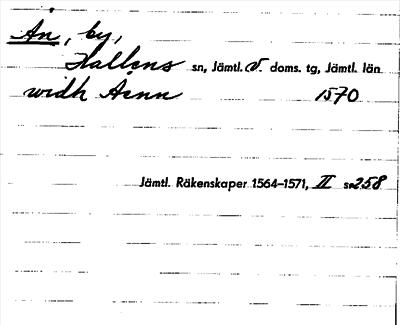 Ån, by,
Hallens sn, Jämtl. V. doms. tg, Jämtl. län
widh Åenn 1570
Jämtl. Räkenskaper 1564–1571, II s. 258